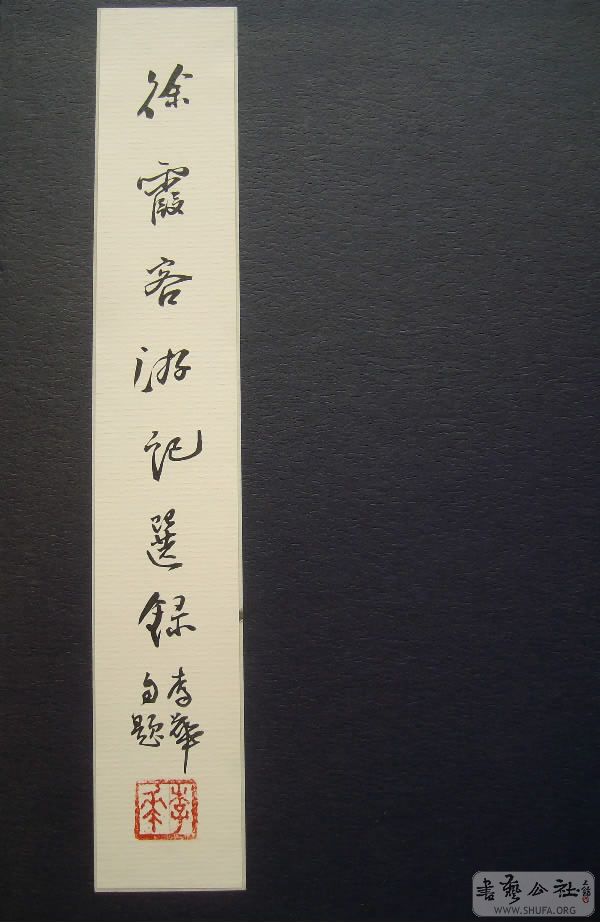 徐霞客游記選録
李華
自題
書藝公社
WWW.SHUFA.ORG